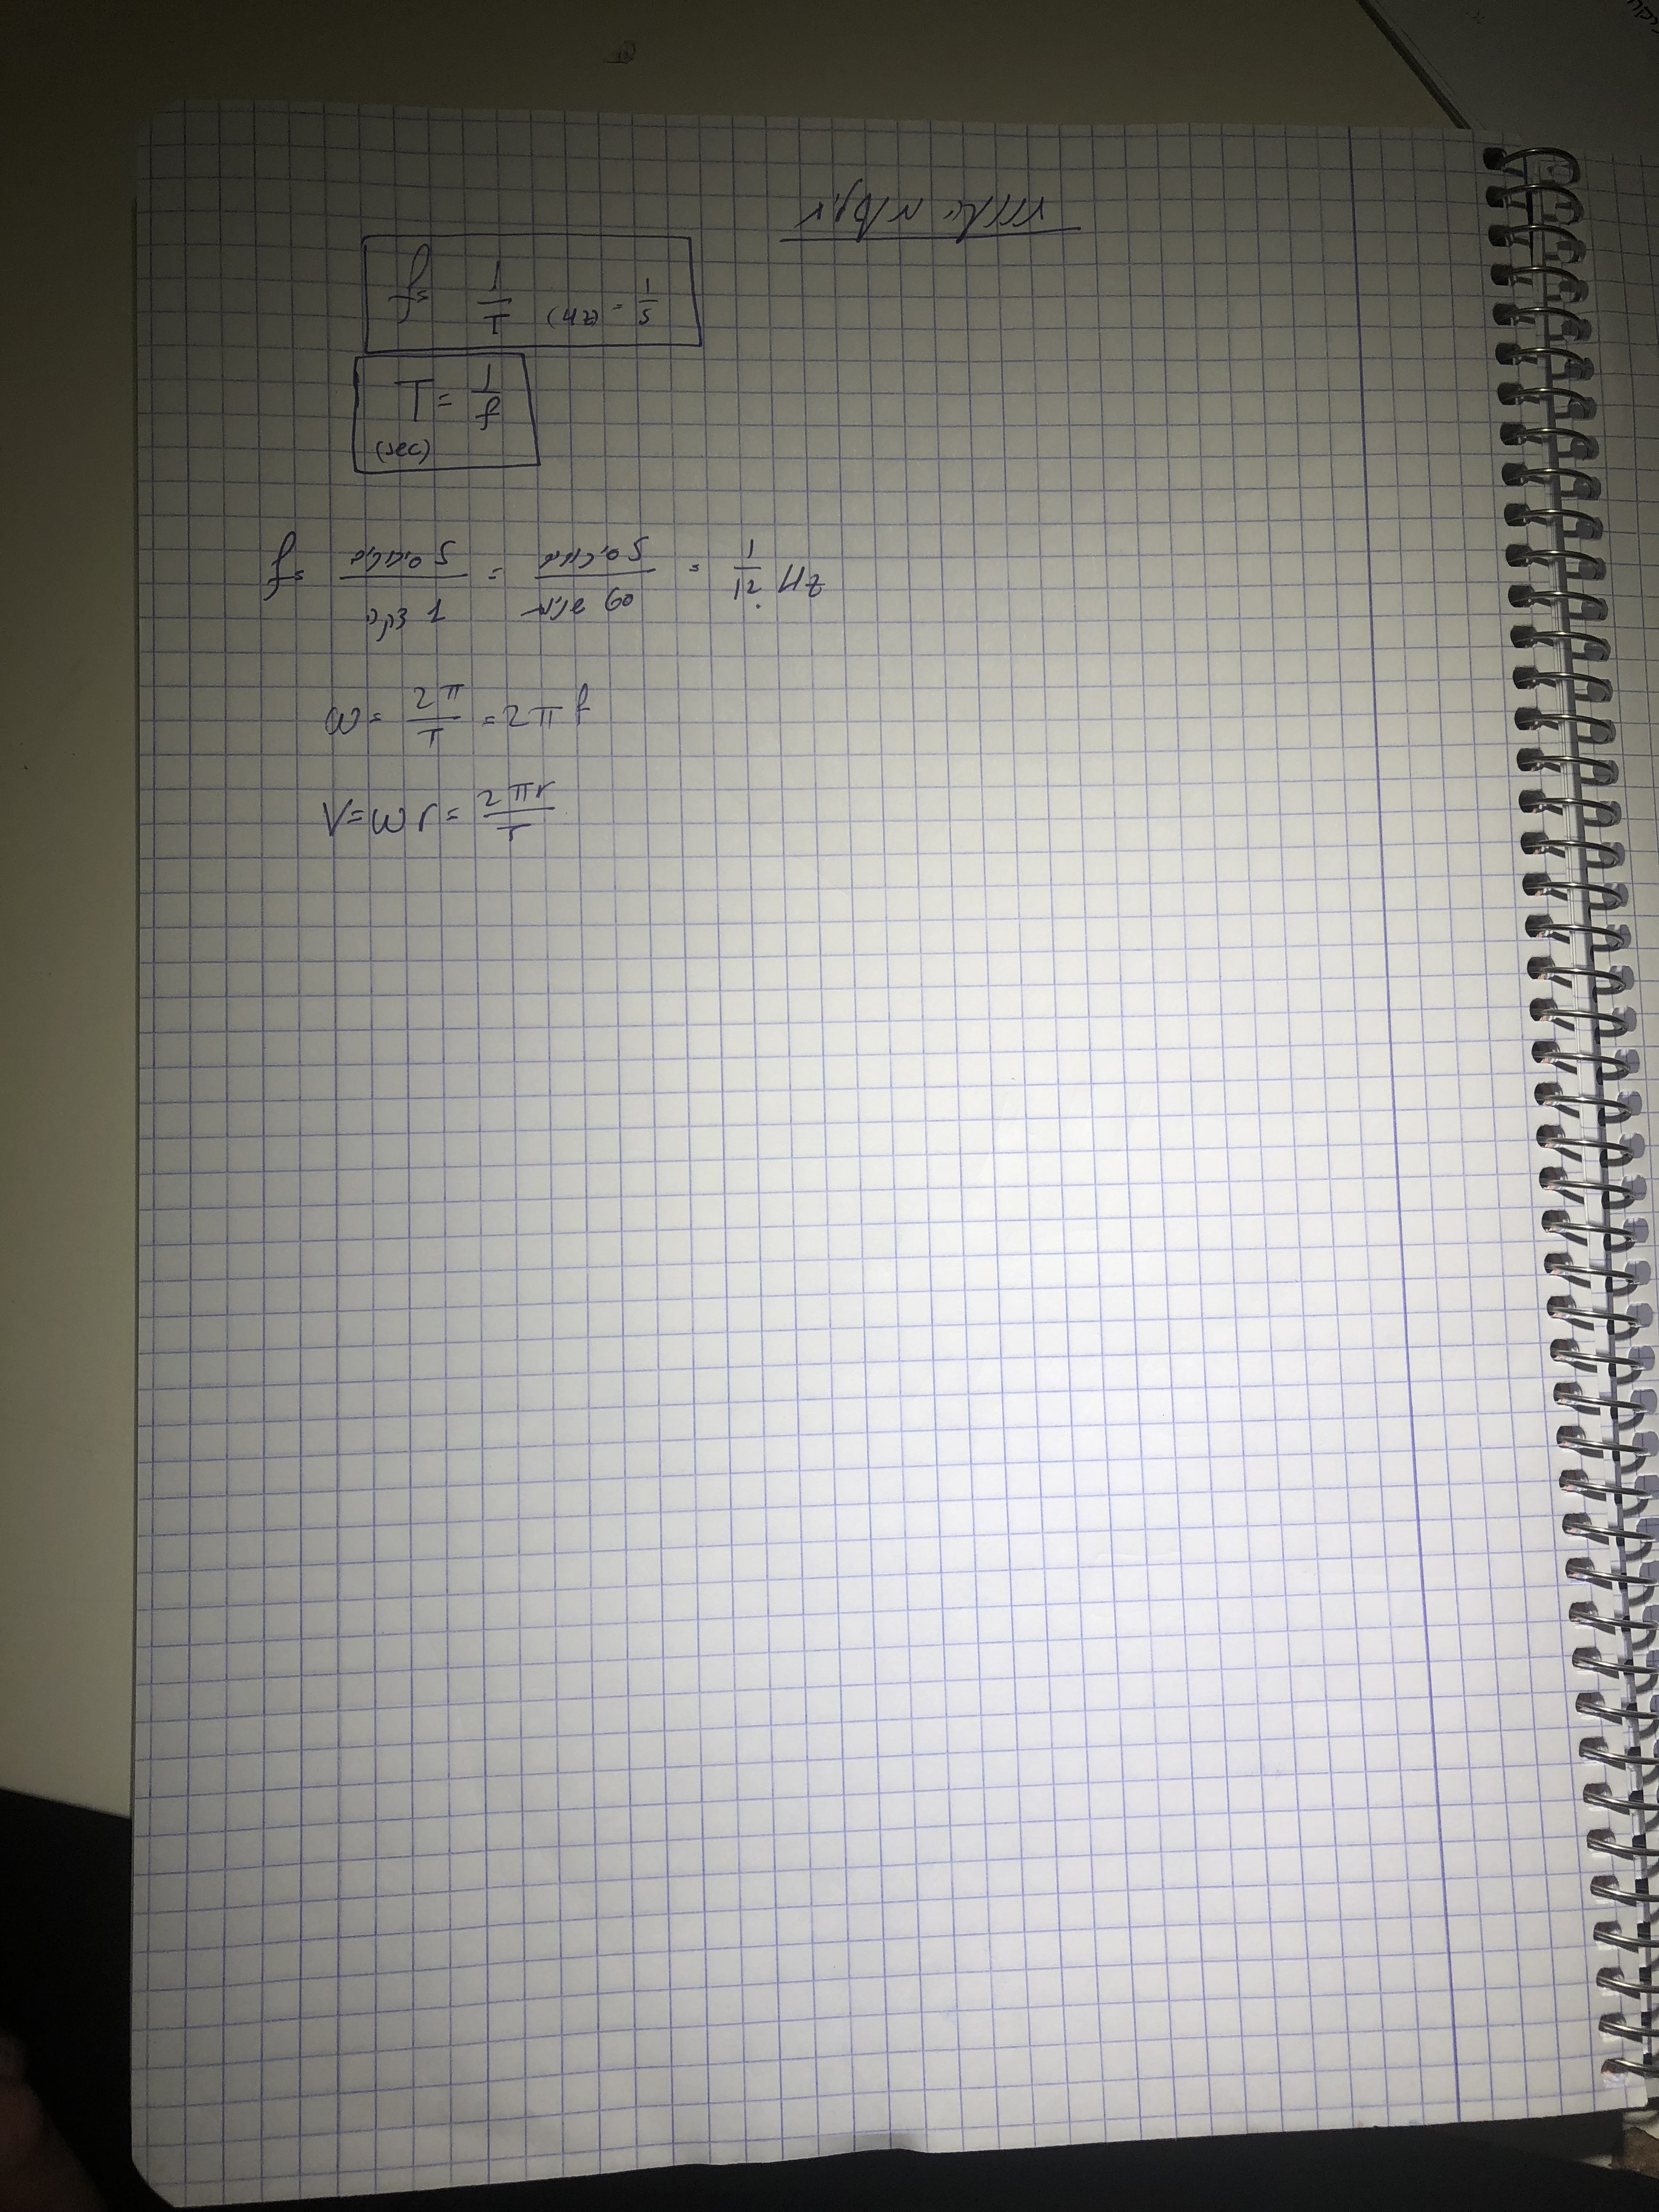 f = 1/T (Hz) = 1/s
T = 1/f
(sec)
f = 5 סיבובים / 1 דקה = 5 סיבובים / 60 שניות = 1/12 Hz
ω = 2π/T = 2πf
V = ωr = 2πr/T